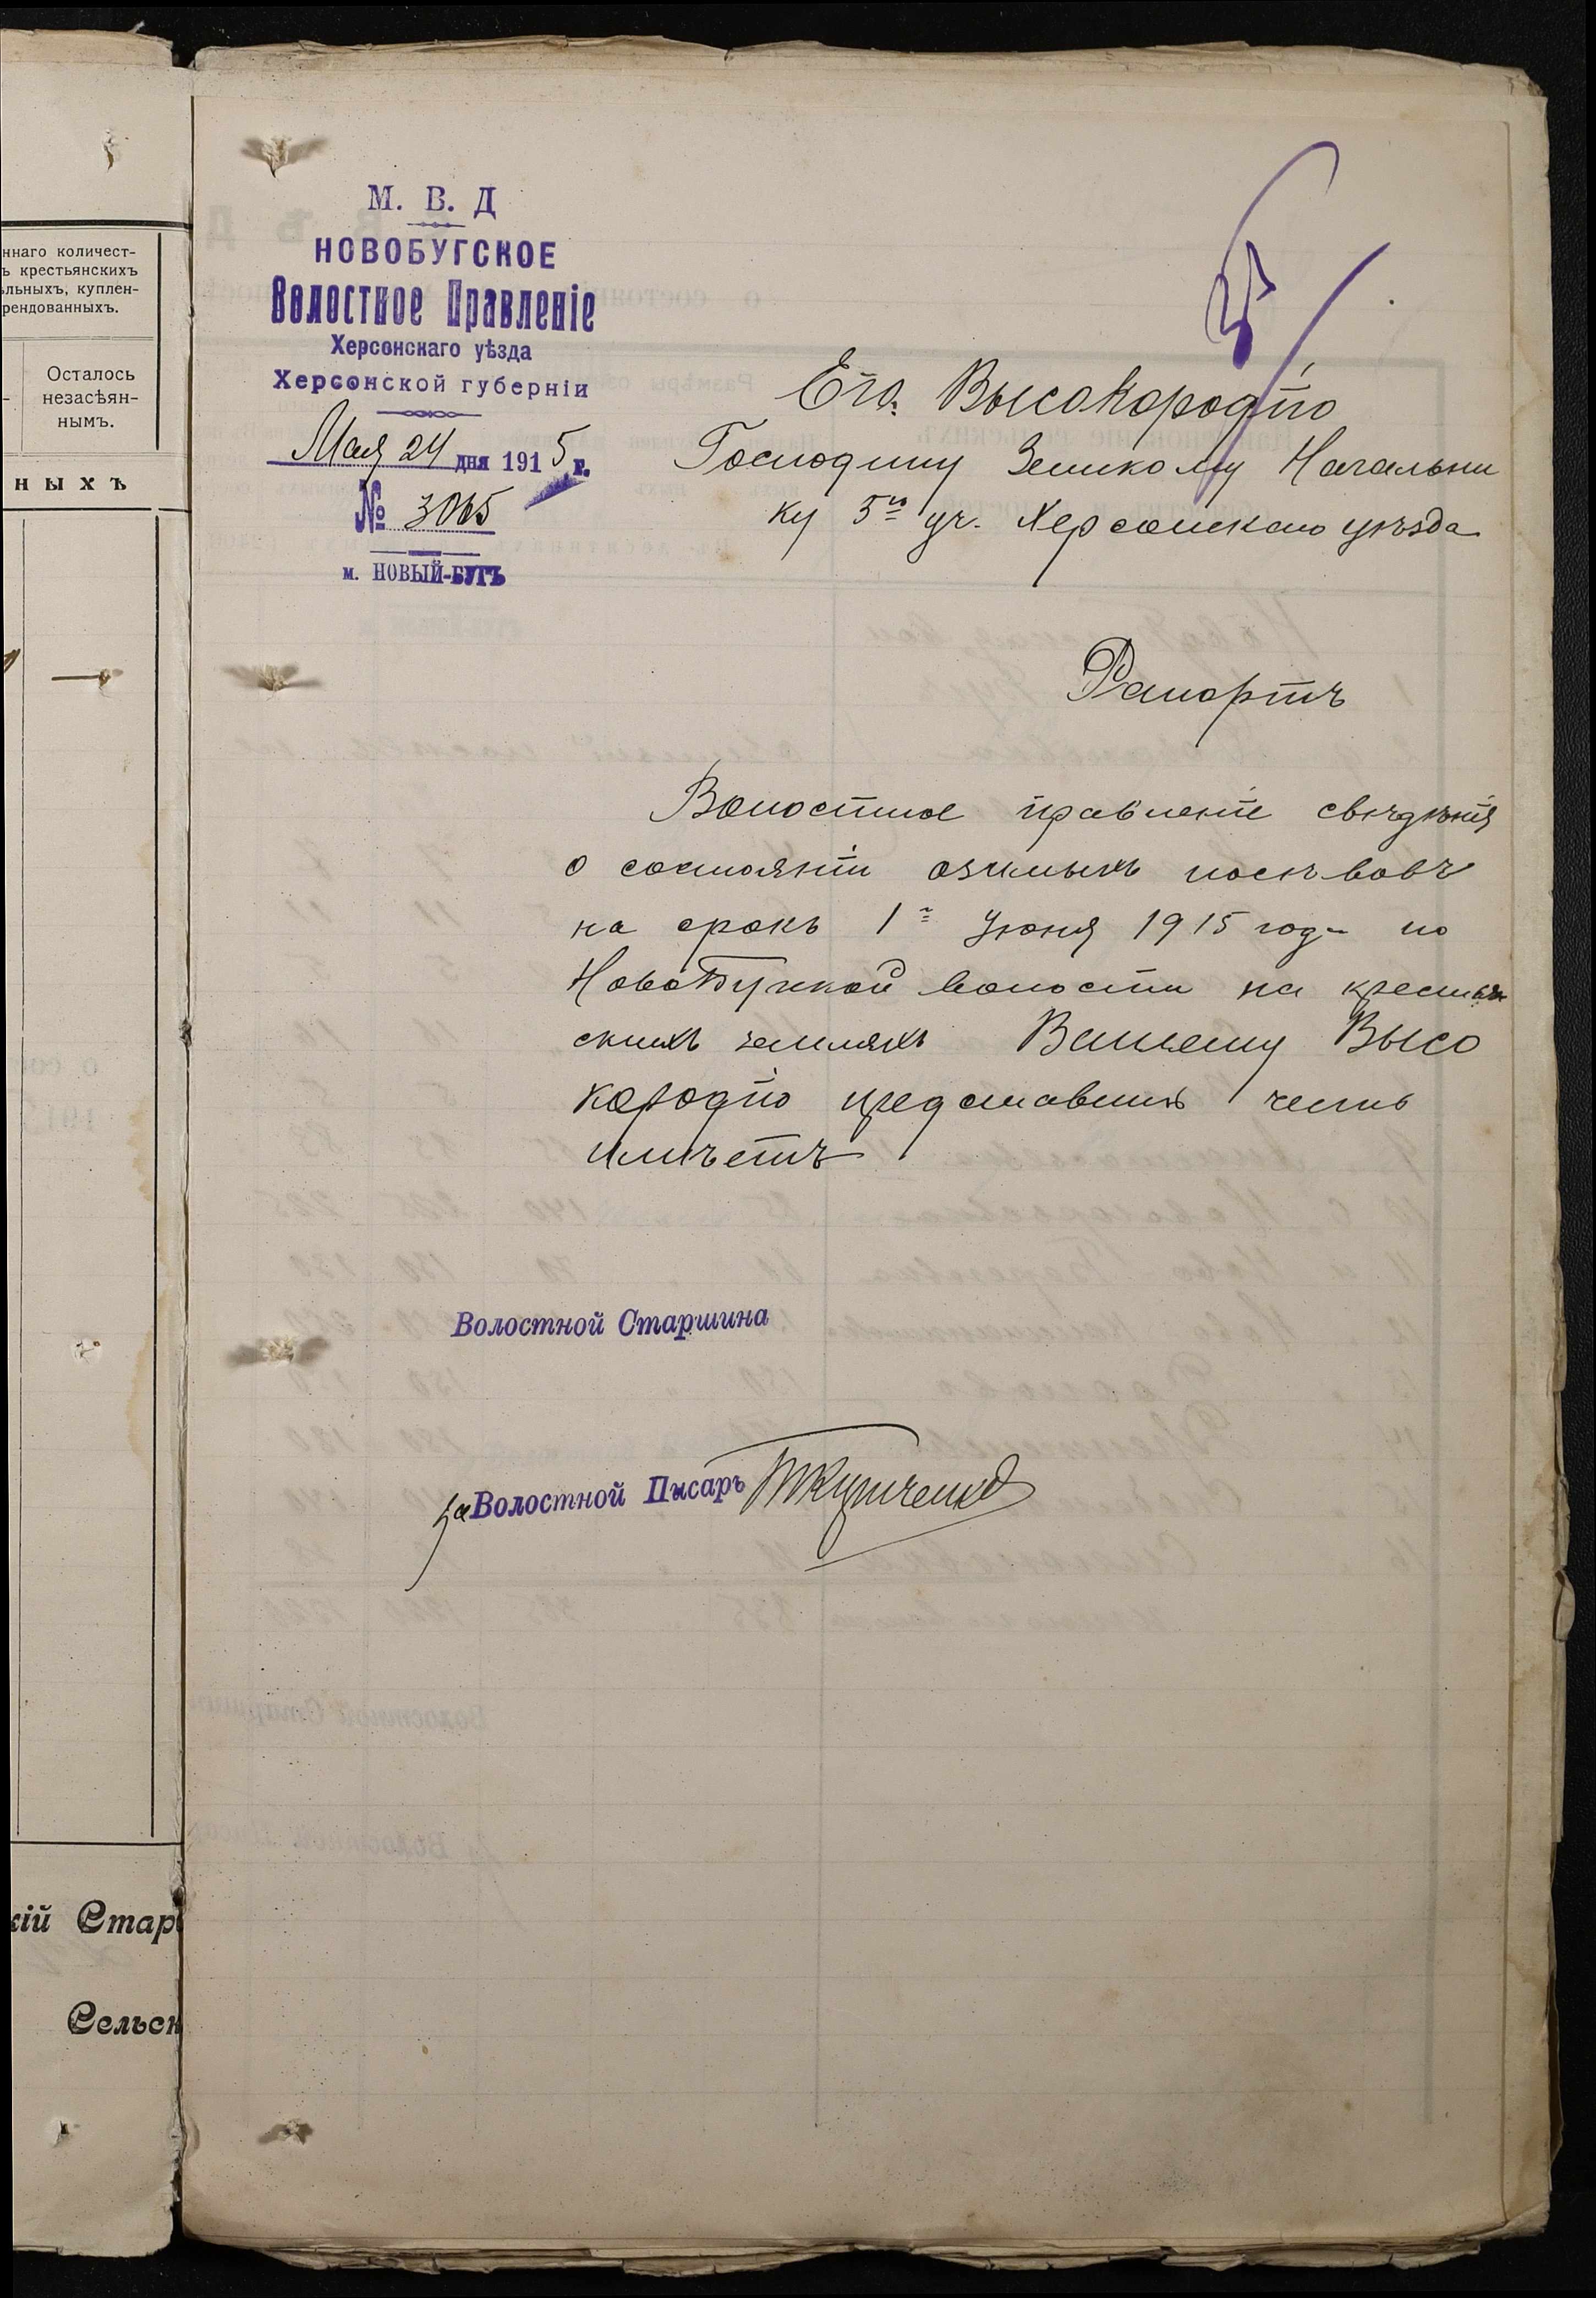 ннаго количест-
ъ крестьянскихъ
льныхъ, куплен-
рендованныхъ.
Осталось
незасѣян-
нымъ.
ныхъ
кій Стар
Сельск
М. В. Д
НОВОБУГСКОЕ
Волостное Правленіе
Херсонскаго уѣзда
Херсонской губерніи
Мая 24 дня 1915 г.
№ 3065
м. НОВЫЙ-БУГЪ
Его Высокородію
Господину Земскому Начальни
ку 5го уч. Херсонскаго уѣзда
Рапортъ
Волостное правленіе свѣдѣнія
о состояніи озимыхъ посѣвовъ
на срокъ 1е Іюня 1915 года по
НовоБугской волости на крестьян
скихъ земляхъ Вашему Высо
кородію представить честь
имѣетъ
Волостной Старшина
за Волостной Писарь